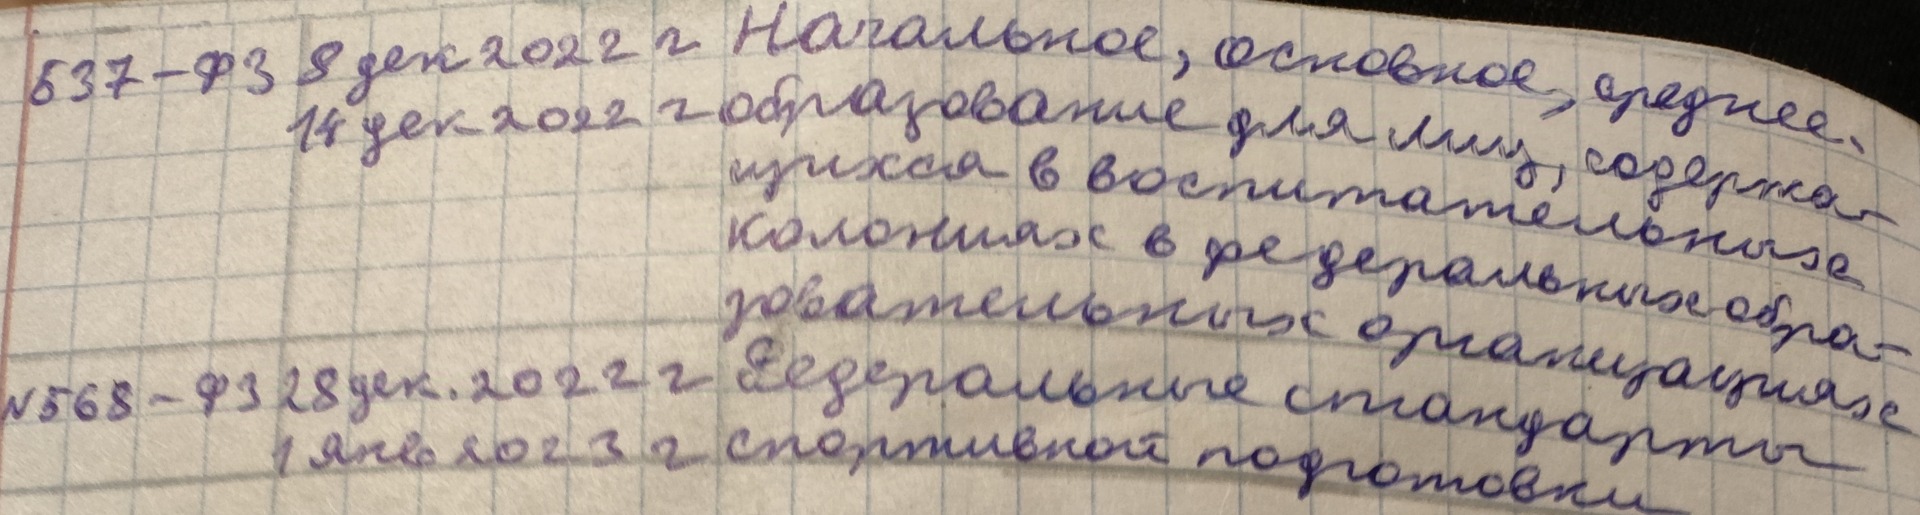 537-ФЗ 8 дек 2022 г Начальное, основное, среднее
14 дек 2022 г образование для лиц, содержа-
щихся в воспитательных
колониях в федеральных обра-
зовательных организациях
№568-ФЗ 28 дек. 2022 г Федеральные стандарты
1 янв 2023 г спортивной подготовки